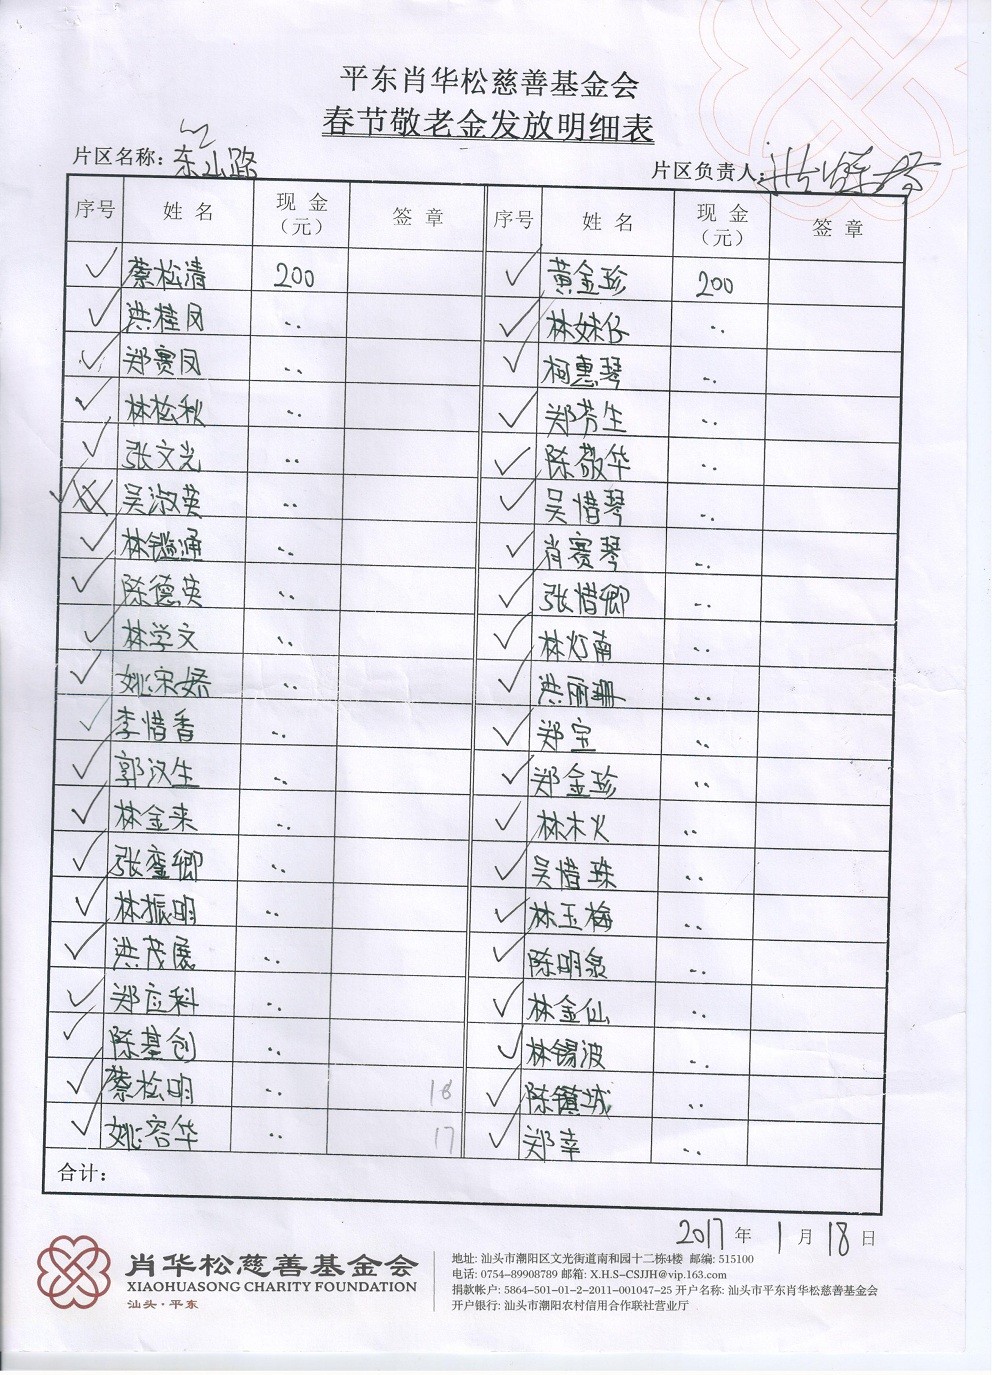 平东肖华松慈善基金会
春节敬老金发放明细表
片区名称：东山路 片区负责人：
序号 姓名 现金（元） 签章 序号 姓名 现金（元） 签章
✓ 蔡松清 200 ✓ 黄金珍 200
✓ 洪桂凤 ·· ✓ 林妹仔 ··
✓ 郑赛凤 ·· ✓ 柯惠琴 ··
✓ 林松秋 ·· ✓ 郑芬生 ··
✓ 张文光 ·· ✓ 陈敬华 ··
✓ 吴淑英 ·· ✓ 吴惜琴 ··
✓ ·· ✓ 肖赛琴 ··
✓ 陈德英 ·· ✓ 张惜卿 ··
✓ 林学文 ·· ✓ 林灯南 ··
✓ 姚宋娇 ·· ✓ 洪丽珊 ··
✓ 李惜香 ·· ✓ 郑宝 ··
✓ 郭汉生 ·· ✓ 郑金珍 ··
✓ 林金来 ·· ✓ 林木火 ··
✓ 张銮卿 ·· ✓ 吴惜珠 ··
✓ 林振明 ·· ✓ 林玉梅 ··
✓ 洪茂展 ·· ✓ 陈明泉 ··
✓ 郑应科 ·· ✓ 林金仙 ··
✓ 陈基创 ·· ✓ 林锡波 ··
✓ 蔡松明 ·· 18 ✓ 陈镇城 ··
✓ 姚容华 ·· 17 ✓ 郑幸 ··
合计：
2017年1月18日
肖华松慈善基金会
XIAOHUASONG CHARITY FOUNDATION
汕头·平东
地址: 汕头市潮阳区文光街道南和园十二栋4楼 邮编: 515100
电话: 0754-89908789 邮箱: X.H.S-CSJJH@vip.163.com
捐款帐户: 5864-501-01-2-2011-001047-25 开户名称: 汕头市平东肖华松慈善基金会
开户银行: 汕头市潮阳农村信用合作联社营业厅